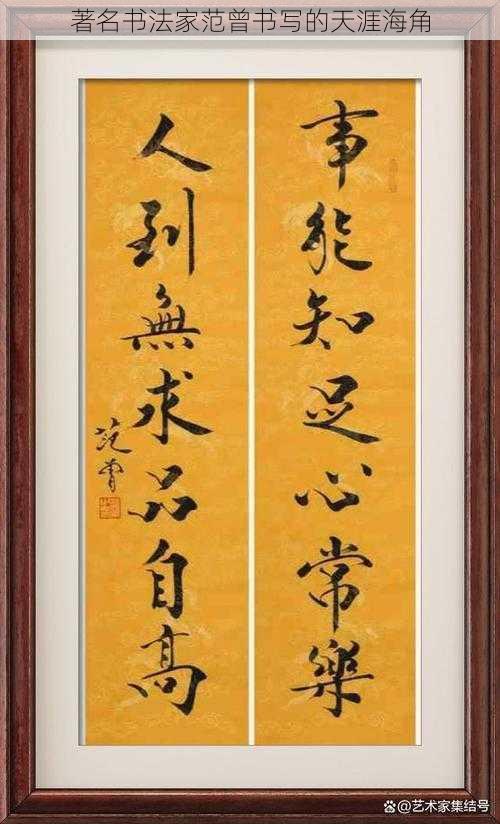 著名书法家范曾书写的天涯海角
事能知足心常樂
人到無求品自高
范曾
@艺术家集结号